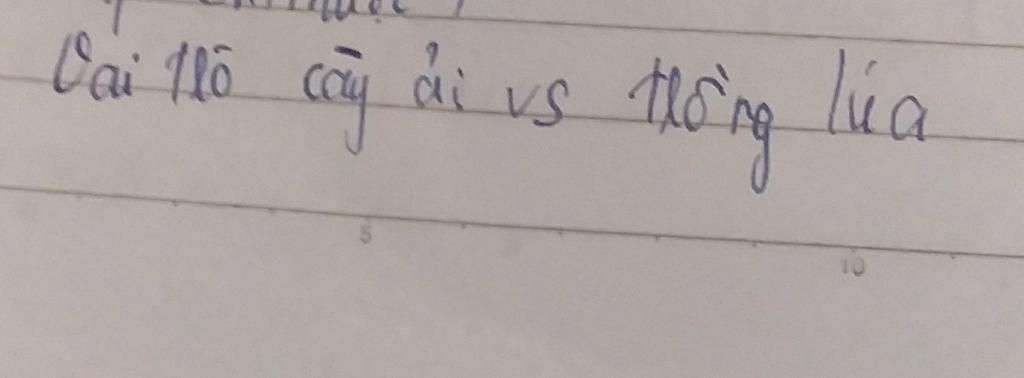 Vai trò cày ải vs trồng lúa
5
10